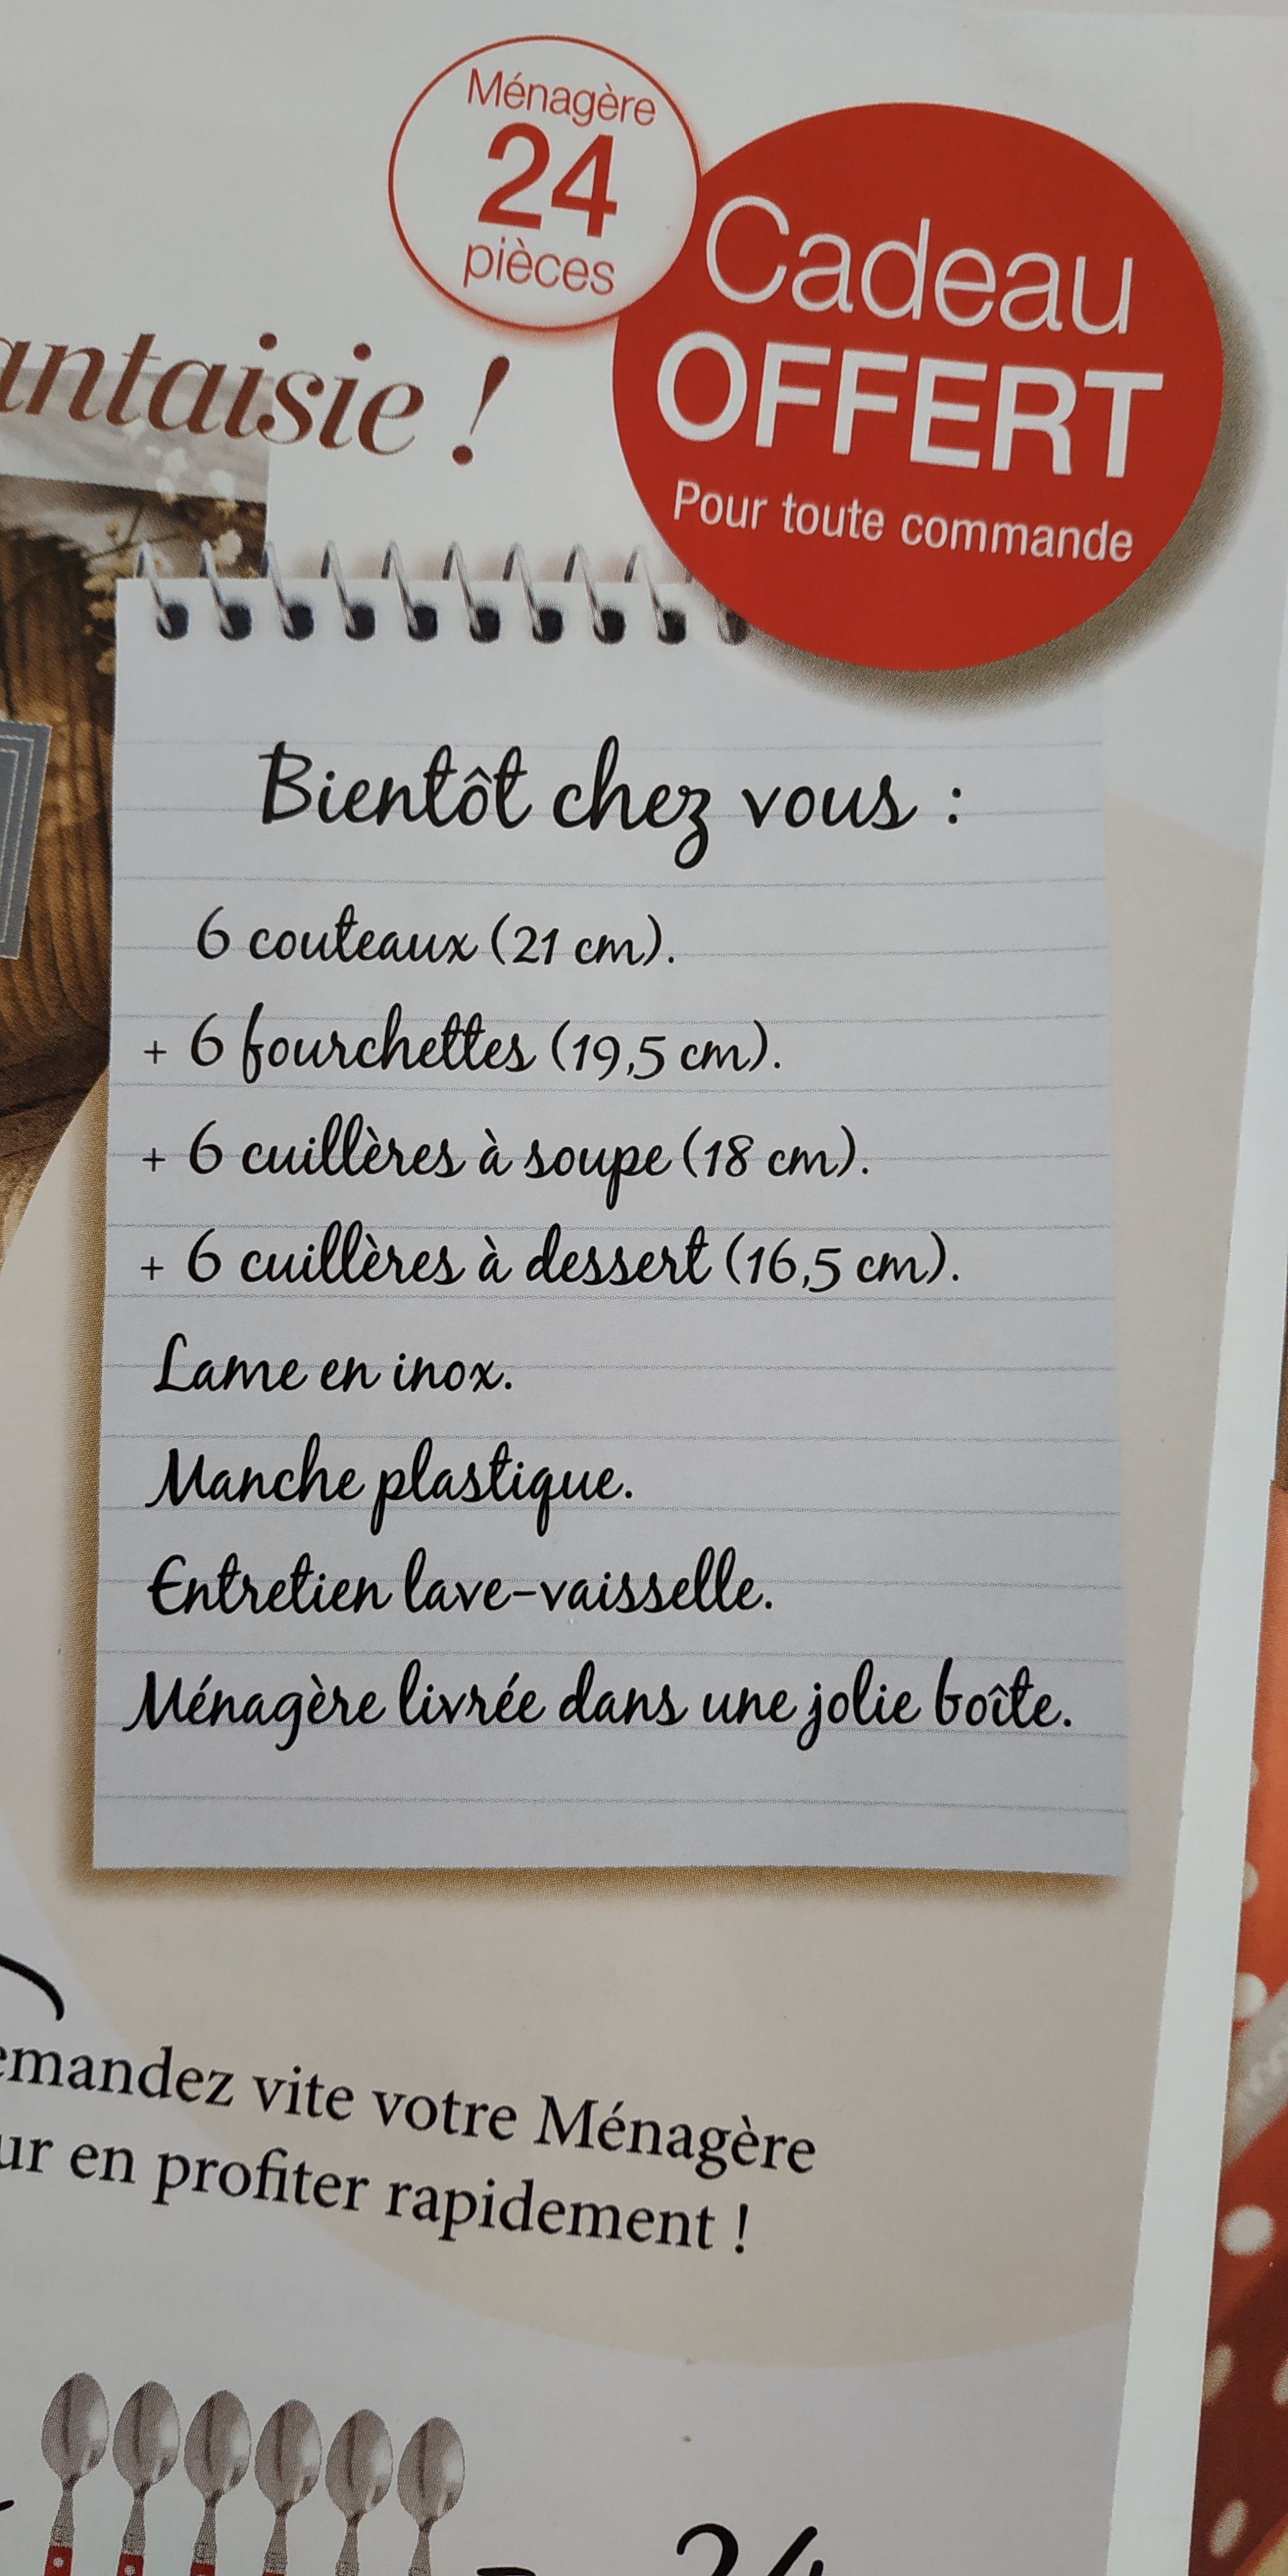 Ménagère
24
pièces
Cadeau
OFFERT
Pour toute commande
antaisie !
Bientôt chez vous :
6 couteaux (21 cm).
+ 6 fourchettes (19,5 cm).
+ 6 cuillères à soupe (18 cm).
+ 6 cuillères à dessert (16,5 cm).
Lame en inox.
Manche plastique.
Entretien lave-vaisselle.
Ménagère livrée dans une jolie boîte.
emandez vite votre Ménagère
ur en profiter rapidement !
= 24